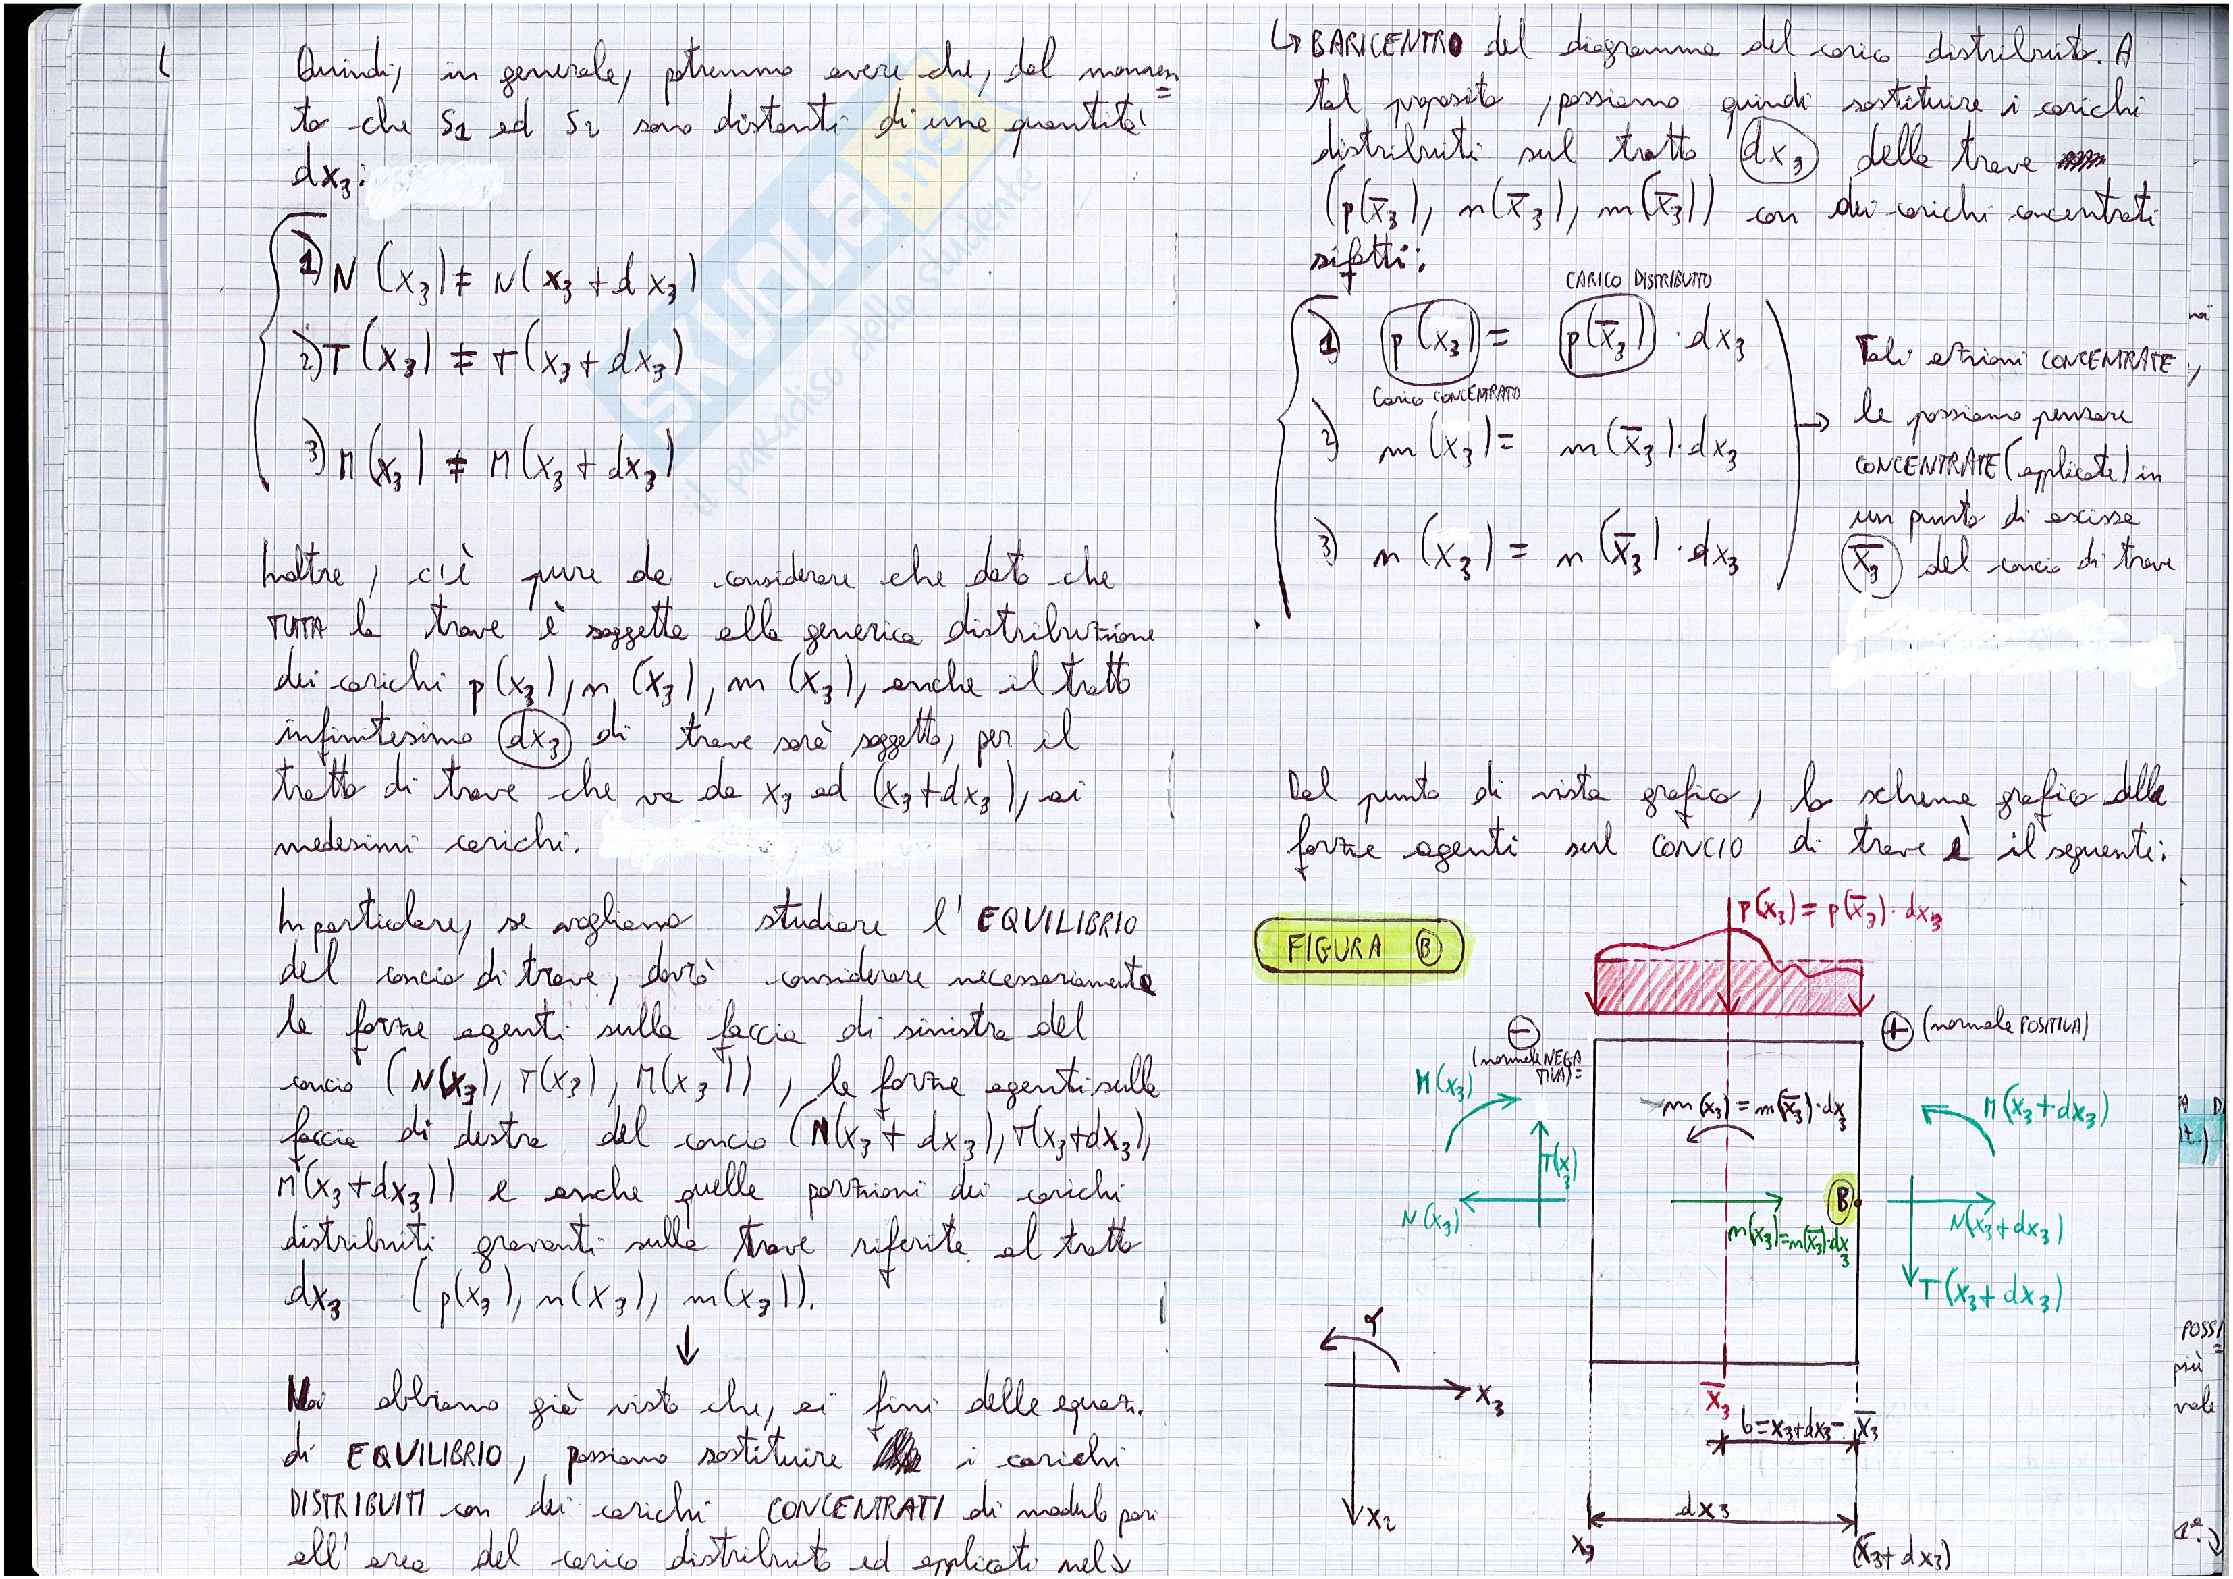 Quindi, in generale, potremmo avere che, dal momen=
to che S1 ed S2 sono distanti di una quantità
dx3:
1) N(x3) ≠ N(x3+dx3)
2) T(x3) ≠ T(x3+dx3)
3) M(x3) ≠ M(x3+dx3)
Inoltre, c'è pure da considerare che dato che
TUTTA la trave è soggetta alla generica distribuzione
dei carichi p(x3), n(x3), m(x3), anche il tratto
infinitesimo dx3 di trave sarà soggetto, per il
tratto di trave che va da x3 ad (x3+dx3), ai
medesimi carichi.
In particolare, se vogliamo studiare l'EQUILIBRIO
del concio di trave, dovrò considerare necessariamente
le forze agenti sulla faccia di sinistra del
concio (N(x3), T(x3), M(x3)), le forze agenti sulla
faccia di destra del concio (N(x3+dx3), T(x3+dx3),
M(x3+dx3)) e anche quelle porzioni dei carichi
distribuiti gravanti sulla trave riferite al tratto
dx3 (p(x3), n(x3), m(x3)).
↓
Noi abbiamo già visto che, ai fini delle equaz.
di EQUILIBRIO, possiamo sostituire i carichi
DISTRIBUITI con dei carichi CONCENTRATI di modulo pari
all'area del carico distribuito ed applicati nel ↴
↳ BARICENTRO del diagramma del carico distribuito. A
tal proposito, possiamo quindi sostituire i carichi
distribuiti sul tratto dx3 della trave
(p(x̄3), n(x̄3), m(x̄3)) con dei carichi concentrati
siffatti:
CARICO DISTRIBUITO
1) p(x3) = p(x̄3)·dx3
Carico CONCENTRATO
2) m(x3) = m(x̄3)·dx3
3) n(x3) = n(x̄3)·dx3
→ Tali azioni CONCENTRATE,
le possiamo pensare
CONCENTRATE (applicate) in
un punto di ascissa
x̄3 del concio di trave
Dal punto di vista grafico, lo schema grafico delle
forze agenti sul CONCIO di trave è il seguente:
FIGURA B
p(x3) = p(x̄3)·dx3
⊖
(normale NEGA
TIVA)=
⊕ (normale POSITIVA)
M(x3)
m(x3) = m(x̄3)·dx3
M(x3+dx3)
T(x3)
N(x3)
n(x3)=n(x̄3)·dx3
B
N(x3+dx3)
T(x3+dx3)
x3
x2
x̄3
b=x3+dx3-x̄3
dx3
x3
(x3+dx3)
POSSI=
più
vale
SKUOLA.net
il paradiso dello studente